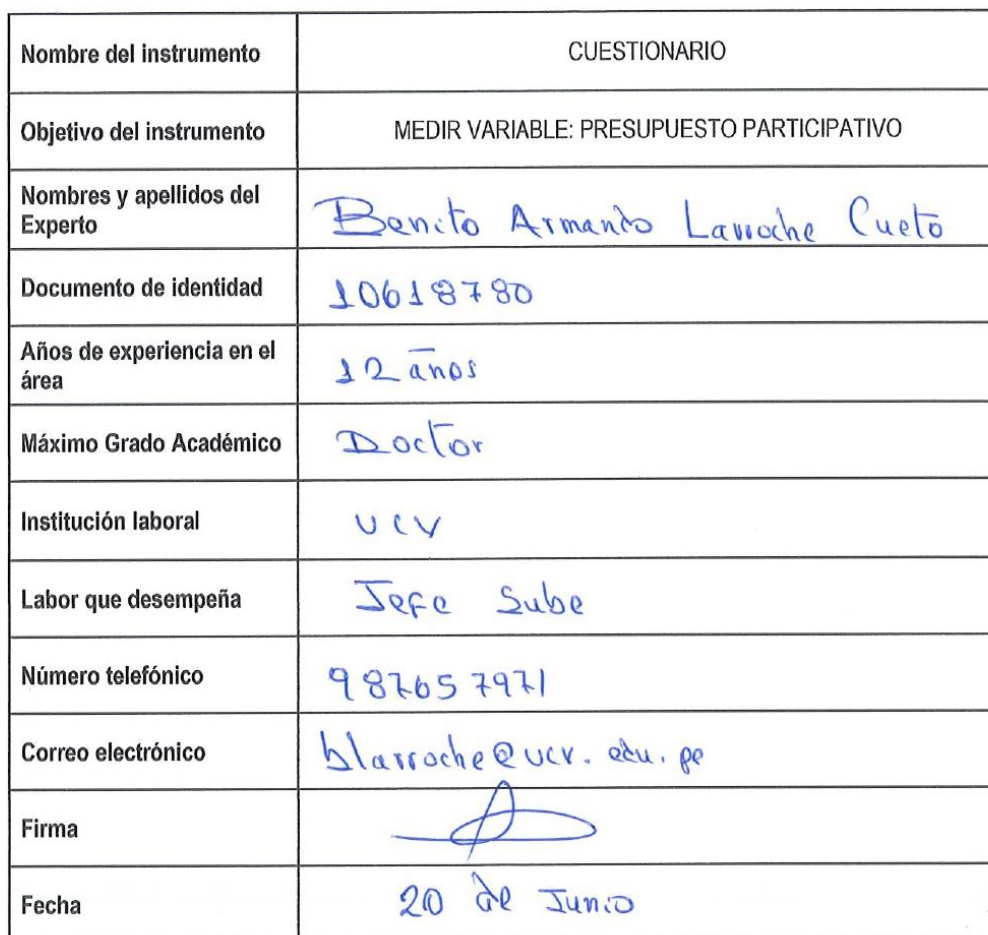 Nombre del instrumento
CUESTIONARIO
Objetivo del instrumento
MEDIR VARIABLE: PRESUPUESTO PARTICIPATIVO
Nombres y apellidos del
Experto
Benito Armando Larroche Cueto
Documento de identidad
10618780
Años de experiencia en el
área
12 años
Máximo Grado Académico
Doctor
Institución laboral
UCV
Labor que desempeña
Jefe Sube
Número telefónico
987657971
Correo electrónico
blarroche@ucv.edu.pe
Firma
Fecha
20 de Junio